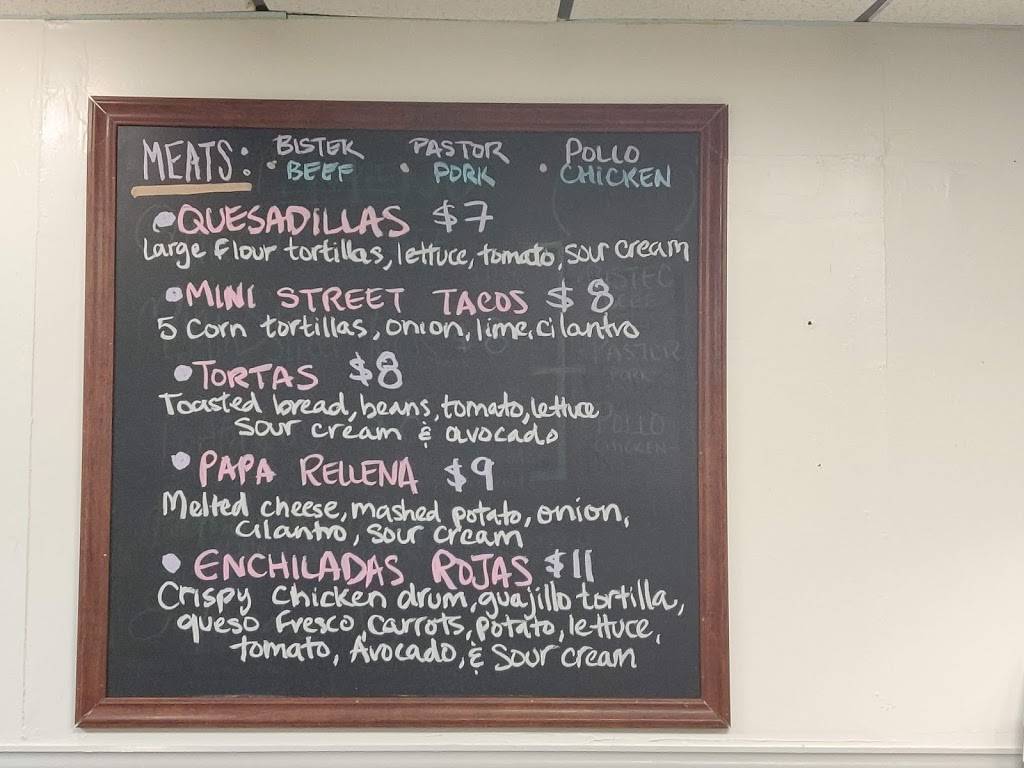 MEATS: • BISTEK • PASTOR • POLLO
BEEF PORK CHICKEN
• QUESADILLAS $7
Large flour tortillas, lettuce, tomato, sour cream
• MINI STREET TACOS $8
5 corn tortillas, onion, lime, cilantro
• TORTAS $8
Toasted bread, beans, tomato, lettuce
sour cream & avocado
• PAPA RELLENA $9
Melted cheese, mashed potato, onion,
cilantro, sour cream
• ENCHILADAS ROJAS $11
Crispy chicken drum, guajillo tortilla,
queso fresco, carrots, potato, lettuce,
tomato, Avocado, & sour cream
PASTOR
PORK
POLLO
CHICKEN